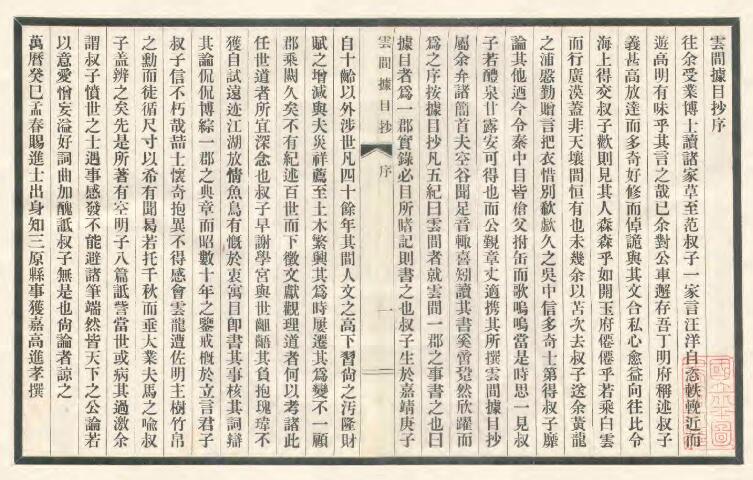 雲間據目抄序
往余受業博士讀諸家草至范叔子一家言汪洋自恣軼軼近而
遊高明有味乎其言之哉已余對公車邂存吾丁明府稱述叔子
義甚高放達而多奇好修而倬詭與其文合私心愈益向往比令
海上得交叔子歡則見其人森森乎如開玉府僊僊乎若乘白雲
而行廣漠蓋非天壤間恒有也未幾余以苦次去叔子送余黃龍
之浦慇勤贈言把衣惜別歔欷久之吳中信多奇士第得叔子靡
論其他迺今令秦中目皆傖父拊缶而歌嗚嗚當是時思一見叔
子若醴泉甘露安可得也而公覲章丈適携其所撰雲間據目抄
屬余弁諸簡首夫空谷聞足音輒喜矧讀其書奚啻跫然欣躍而
為之序按據目抄凡五紀曰雲間者就雲間一郡之事書之也曰
據目者為一郡實錄必目所睹記則書之也叔子生於嘉靖庚子
雲間據目抄
序
一
自十齡以外涉世凡四十餘年其間人文之高下習尚之汚隆財
賦之增減與夫災祥薦至土木繁興其為時屢遷其為變不一顧
郡乘闕久矣不有紀述百世而下徵文獻觀理道者何以考諸此
任世道者所宜深念也叔子早謝學宮與世齟齬其負抱瑰瑋不
獲自試遠迹江湖放情魚鳥有慨於衷寓目卽書其事核其詞辯
其論侃侃博綜一郡之典章而昭數十年之鑒戒概於立言君子
叔子信不朽哉喆士懷奇抱異不得感會雲龍遭佐明主樹竹帛
之勳而徒循尺寸以希有聞曷若托千秋而垂大業夫馬之喩叔
子盖辨之矣先是所著有空明子八篇詆訾當世或病其過激余
謂叔子憤世之士遇事感發不能避諸筆端然皆天下之公論若
以意愛憎妄溢好詞曲加醜詆叔子無是也尙論者諒之
萬曆癸巳孟春賜進士出身知三原縣事獲嘉高進孝撰